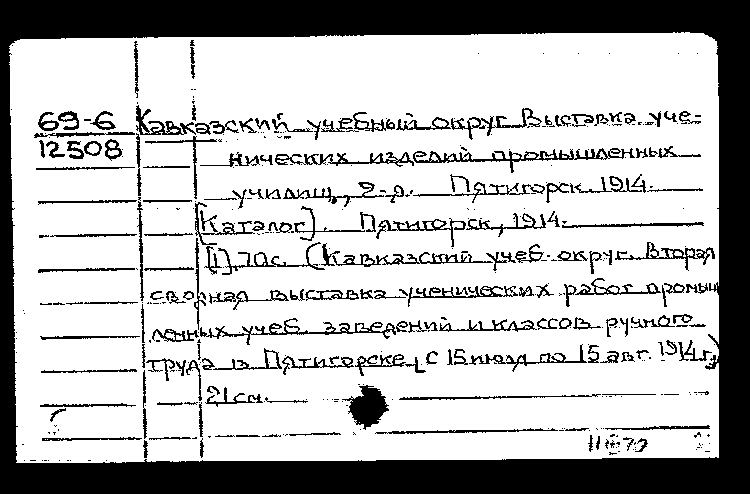 69-6 Кавказский учебный округ Выставка уче-
12508 нических изделий промышленных
училищ, 2-я. Пятигорск. 1914.
[Каталог]. Пятигорск, 1914.
[1], 70с. (Кавказский учеб. округ. Вторая
сводная выставка ученических работ промыш
ленных учеб. заведений и классов ручного
труда в Пятигорске, с 15 июля по 15 авг. 1914 г.)
21 см.